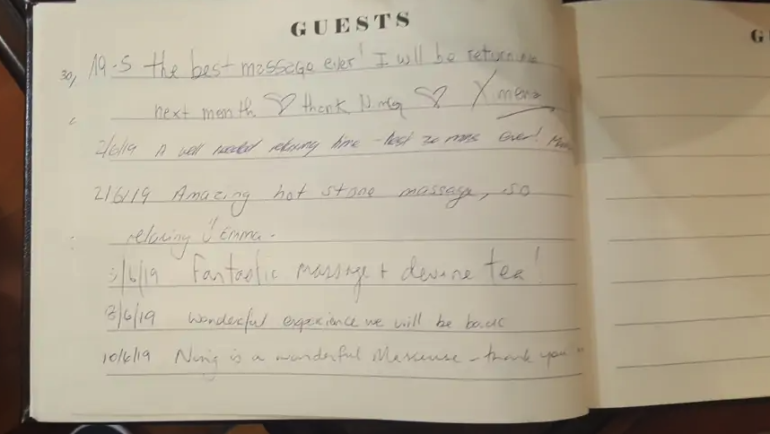 GUESTS
G
30, 19-5 the best massage ever! I will be returning
next month ♡ thank Ning ♡ Ximena
2/6/19 A well needed relaxing time - best 30 mins ever!
2/6/19 Amazing hot stone massage, so
relaxing Emma.
3/6/19 Fantastic massage + devine tea!
8/6/19 Wonderful experience we will be back
10/6/19 Ning is a wonderful Masseuse - thank you